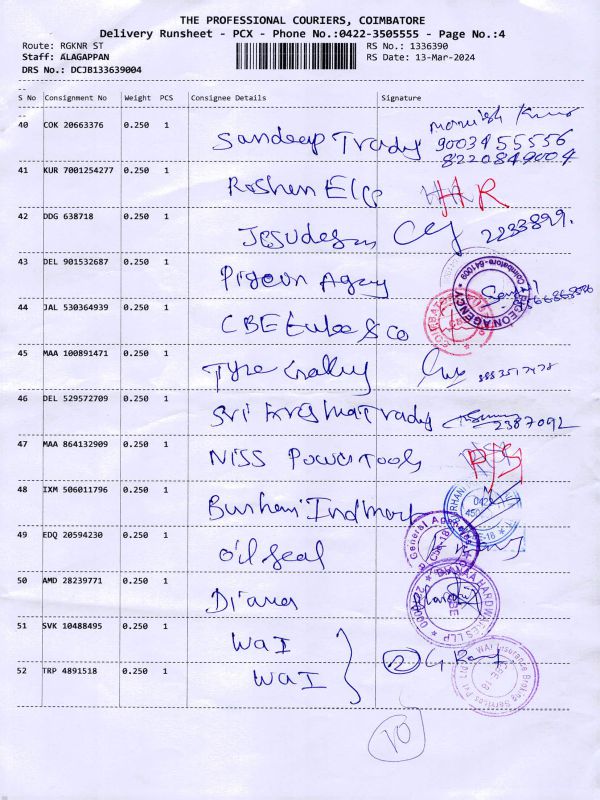 THE PROFESSIONAL COURIERS, COIMBATORE
Delivery Runsheet - PCX - Phone No.:0422-3505555 - Page No.:4
Route: RGKNR ST RS No.: 1336390
Staff: ALAGAPPAN RS Date: 13-Mar-2024
DRS No.: DCJB133639004
S No Consignment No Weight PCS Consignee Details Signature
40 COK 20663376 0.250 1 Sandeep Tradg
9003455556
8220849004
41 KUR 7001254277 0.250 1 Roshen Elec HR
42 DDG 638718 0.250 1 Jesudasan 2233899.
43 DEL 901532687 0.250 1 Pigeon Agcy
44 JAL 530364939 0.250 1 CBE Tube & co
45 MAA 100891471 0.250 1 Tyre
46 DEL 529572709 0.250 1 Sri Krishna Tradg 2387092
47 MAA 864132909 0.250 1 NISS Power Tools
48 IXM 506011796 0.250 1 Burhani Indmart
49 EDQ 20594230 0.250 1 Oil Seal
50 AMD 28239771 0.250 1 Diana
51 SVK 10488495 0.250 1 WAI
52 TRP 4891518 0.250 1 WAI 2
PIGEON AGENCY Coimbatore-641009
DIANAA HARDWARES LLP
WAI Insurance Broking Services Pvt Ltd
10